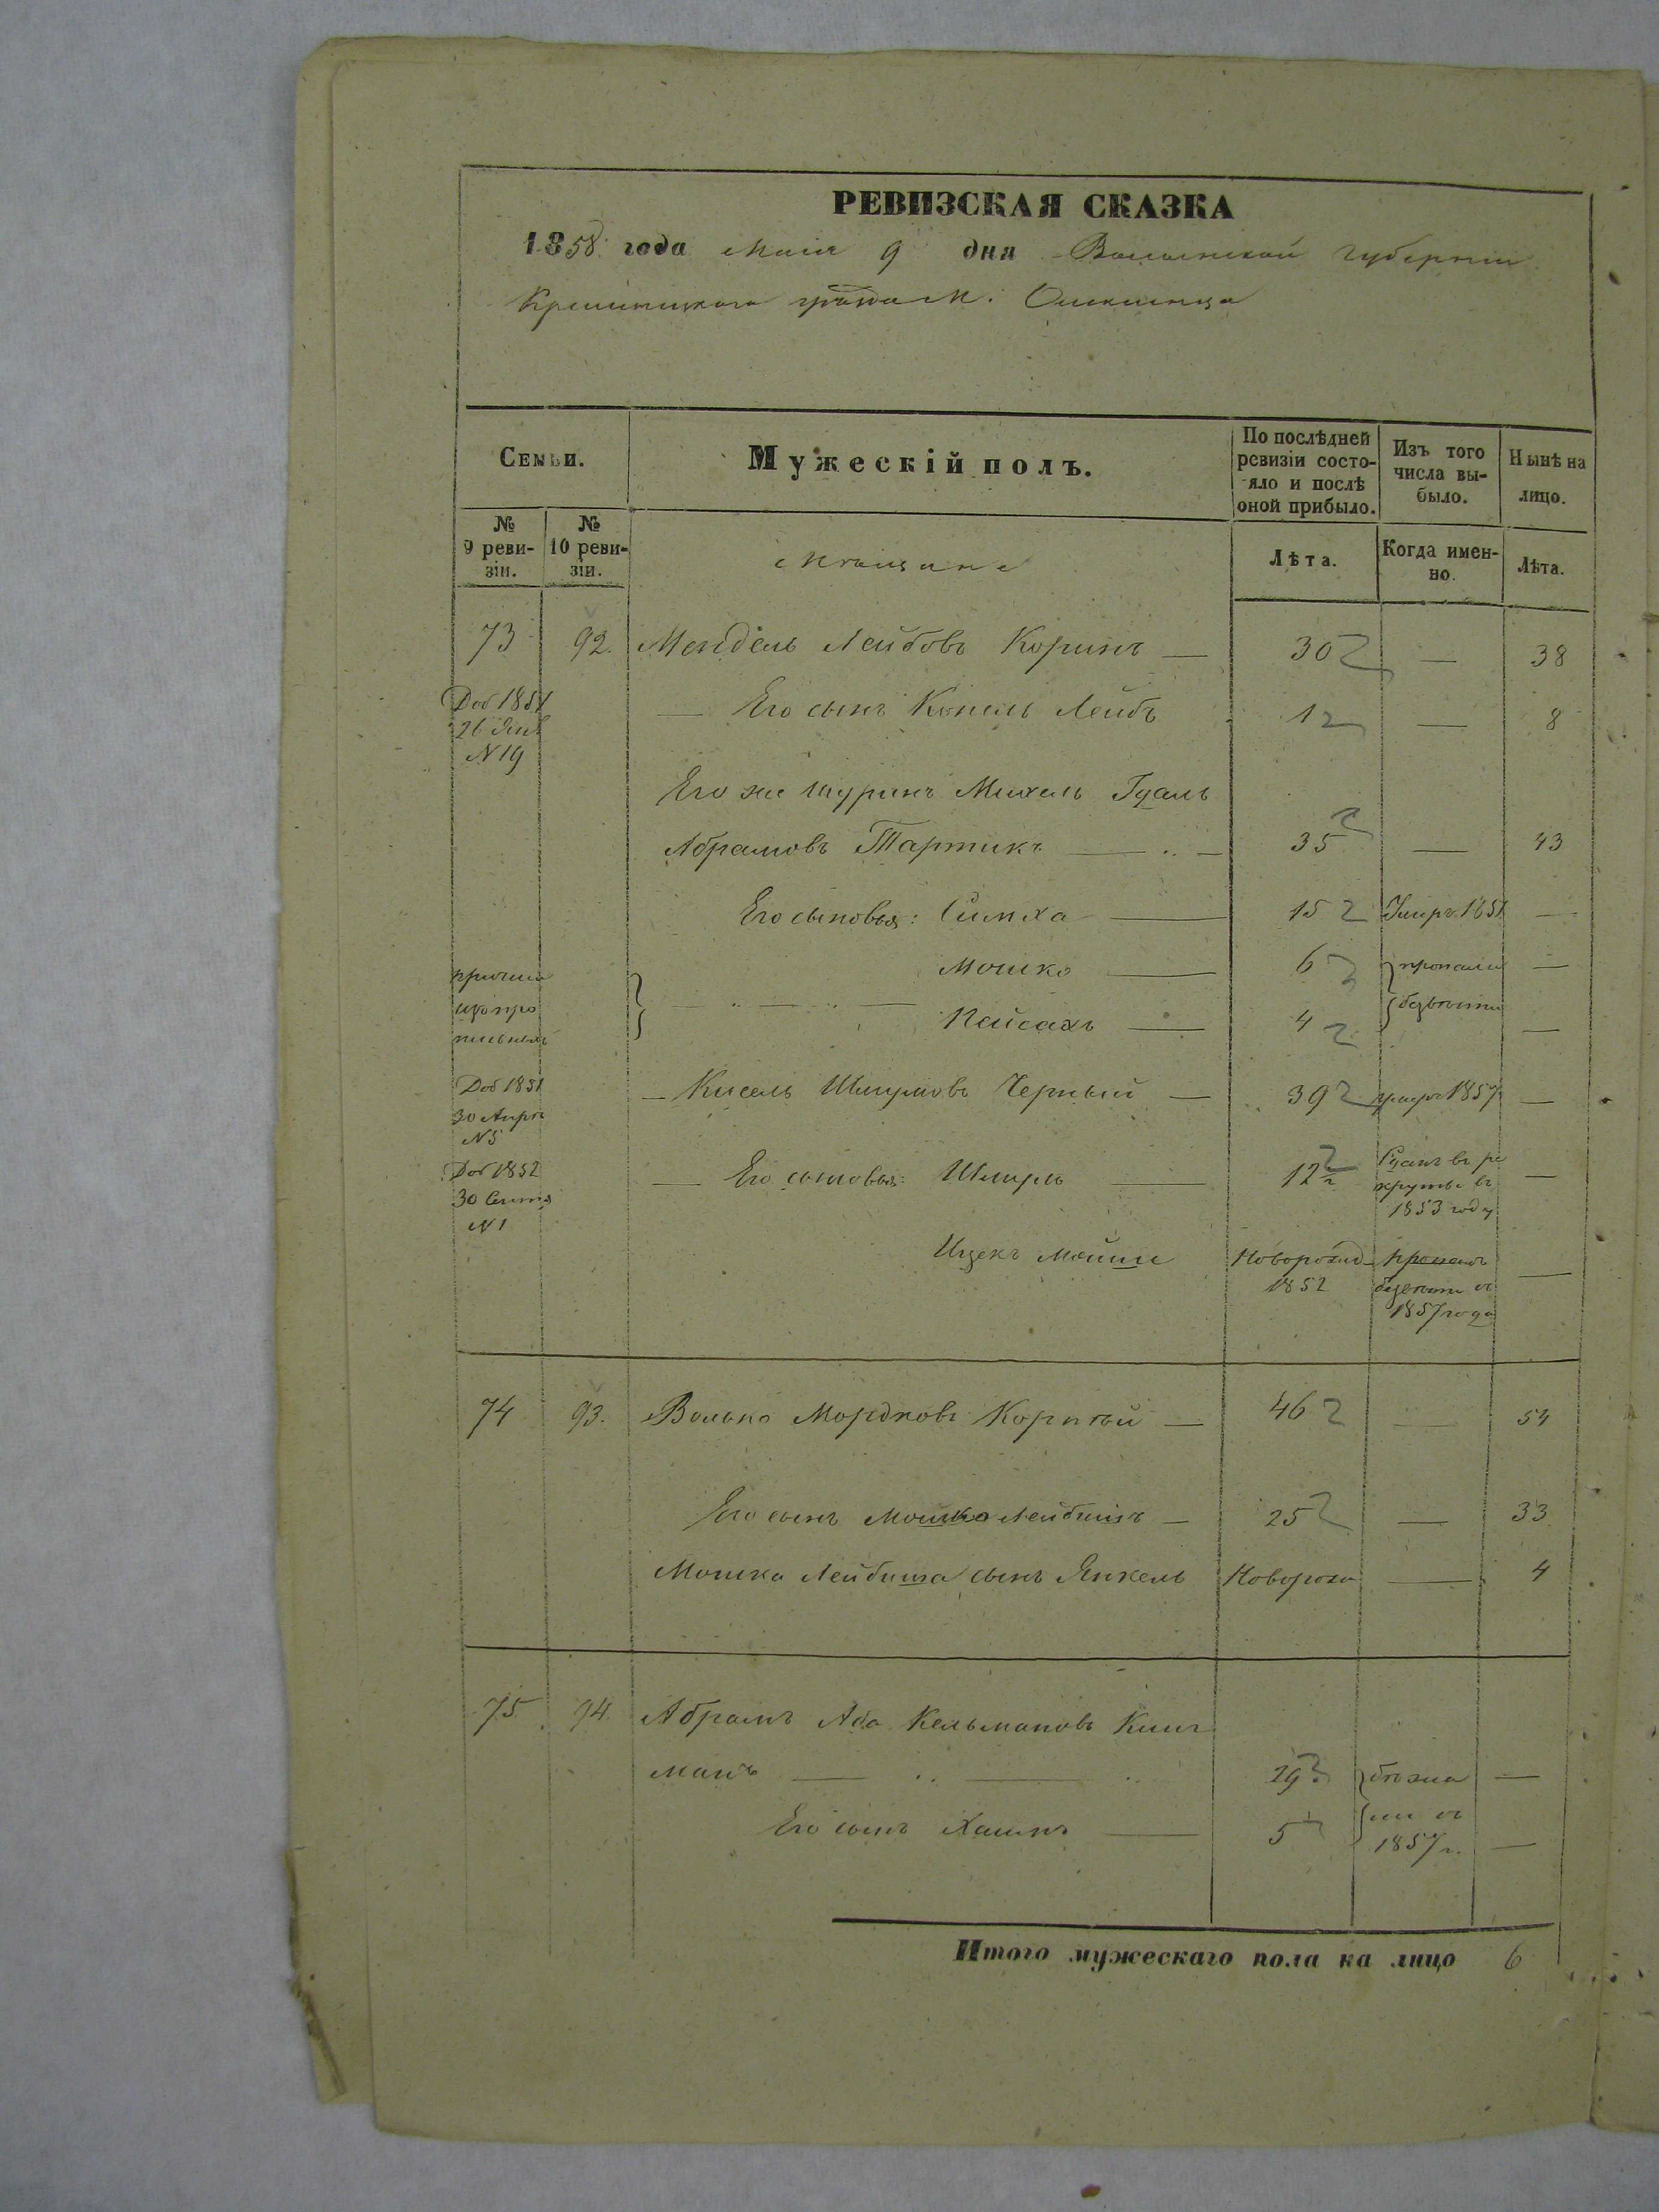 РЕВИЗСКАЯ СКАЗКА
1858 года Мая 9 дня Волынской губернiи
Кременецкого уезда м.
Семьи.
Мужескiй полъ.
По послѣдней ревизiи состо-яло и послѣ оной прибыло.
Изъ того числа вы-было.
Нынѣ на лицо.
№ 9 реви-зiи.
№ 10 реви-зiи.
Мѣщане
Лѣта.
Когда имен-но.
Лѣта.
73 92. Мендель Лейбовъ Коринъ — 30 — 38
Доб 1851
26 Янв
N 19
— Его сынъ Копель Лейбъ 1 — 8
Его же шуринъ Михель Гдаль
Абрамовъ Тартикъ — 35 — 43
Его сыновья: Симха — 15 Умеръ 1851 —
Мошко — 6 пропали —
Пейсахъ — 4 безвѣсти —
Доб 1851
30 Апрѣ
N 5
— Кисель Шмулювъ Черный — 39 умеръ 1857 —
Доб 1852
30 Сентя
N 1
— Его сыновья: Шмиръ — 12 Сданъ въ ре
круты въ
1853 году —
Ицекъ Мойше Новорожд
1852
пропалъ
безвѣсти въ
1857 года —
74 93. Волько Мордковъ Корнтый — 46 — 54
Его сынъ Мошко Лейбишъ — 25 — 33
Мошка Лейбиша сынъ Янкель Новорож — 4
75 94. Абрамъ Аба Кельмановъ Клиг
манъ — 29 бѣжа —
Его сынъ Хаимъ — 5 ли въ
1857 г. —
Итого мужескаго пола на лицо 6